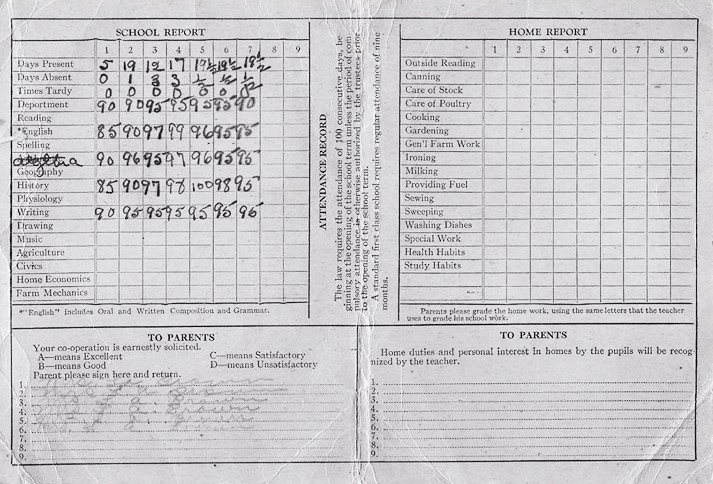 SCHOOL REPORT
1 2 3 4 5 6 7 8 9
Days Present 5 19 19 17 19½ 18½ 18½
Days Absent 0 1 3 3 ½ ½ ½
Times Tardy 0 0 0 0 0 0
Deportment 90 90 95 95 95 95 90
Reading
*English 85 90 97 99 96 95 95
Spelling
Algebra 90 96 95 97 96 95 95
Geography
History 85 90 97 98 100 98 95
Physiology
Writing 90 95 95 95 95 95 95
Drawing
Music
Agriculture
Civics
Home Economics
Farm Mechanics
*"English" includes Oral and Written Composition and Grammar.
ATTENDANCE RECORD
The law requires the attendance of 100 consecutive days, be
ginning at the opening of the school term unless the period of com
pulsory attendance is otherwise authorized by the trustees prior
to the opening of the school term.
A standard first class school requires regular attendance of nine
months.
HOME REPORT
1 2 3 4 5 6 7 8 9
Outside Reading
Canning
Care of Stock
Care of Poultry
Cooking
Gardening
Gen'l Farm Work
Ironing
Milking
Providing Fuel
Sewing
Sweeping
Washing Dishes
Special Work
Health Habits
Study Habits
Parents please grade the home work, using the same letters that the teacher
uses to grade his school work.
TO PARENTS
Your co-operation is earnestly solicited.
A—means Excellent C—means Satisfactory
B—means Good D—means Unsatisfactory
Parent please sign here and return.
1.
2.
3. Brown
4. Brown
5.
6.
7.
8.
9.
TO PARENTS
Home duties and personal interest in homes by the pupils will be recog-
nized by the teacher.
1.
2.
3.
4.
5.
6.
7.
8.
9.